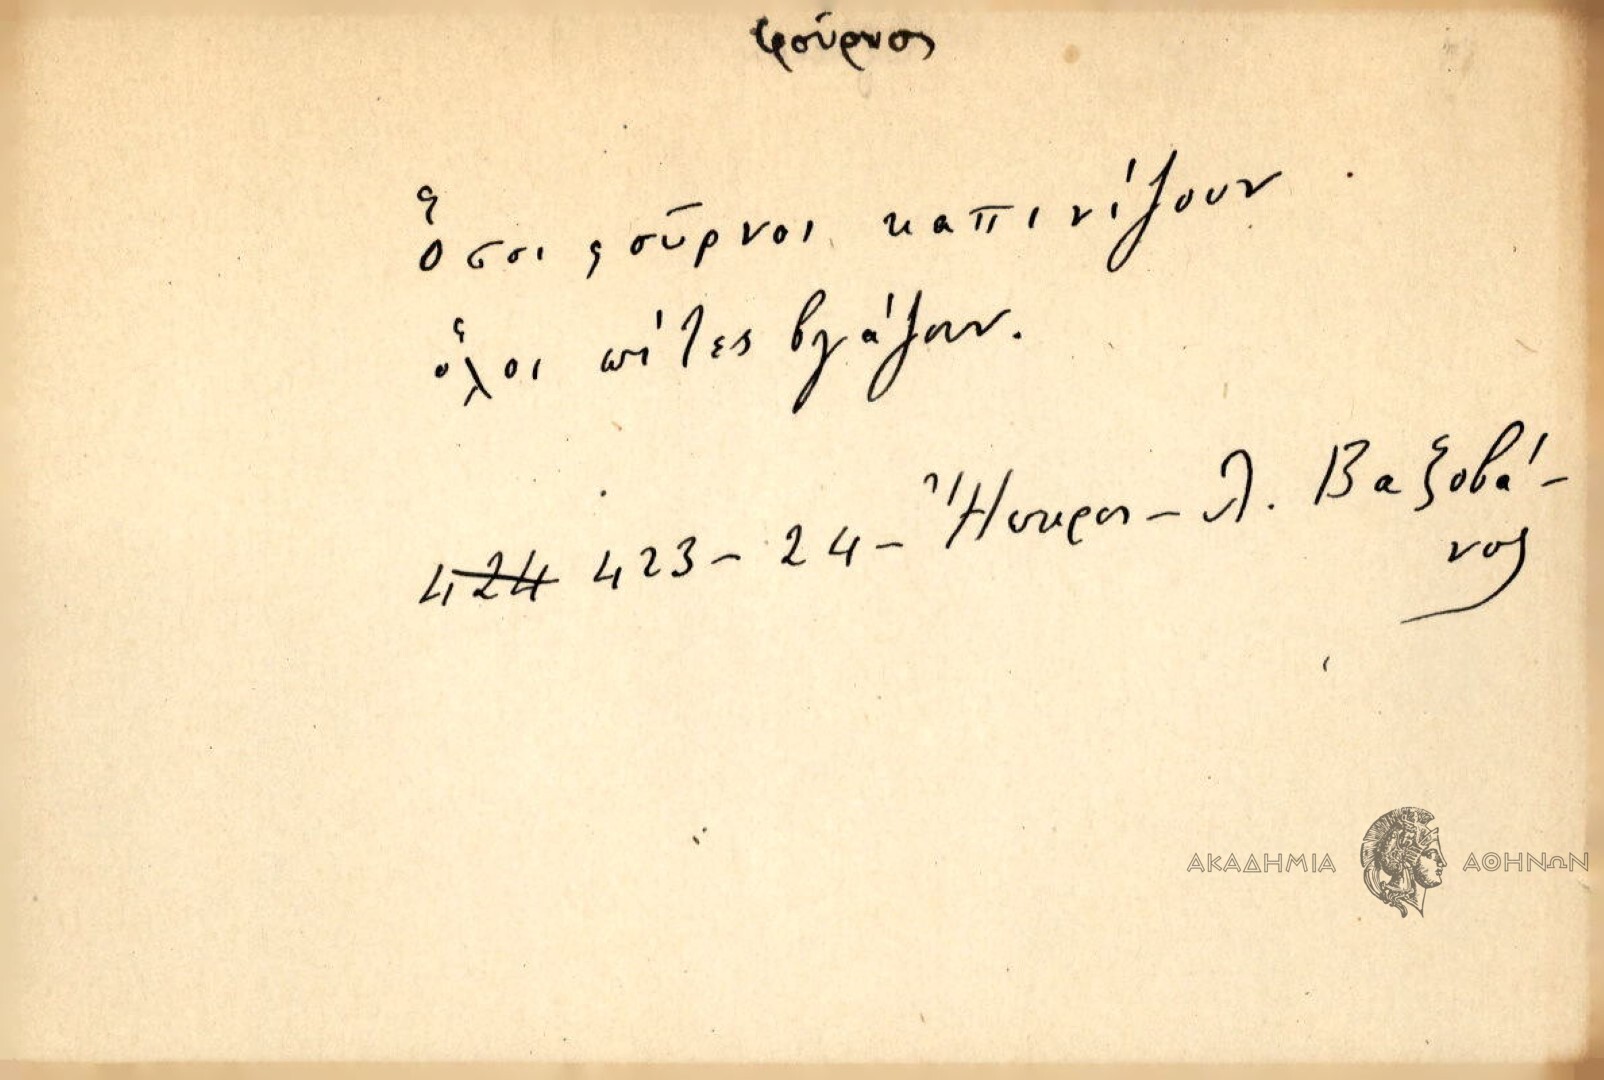 φούρνος
Ὅσοι φοῦρνοι καπινίζουν
ὅλοι πίτες βγάζουν.
424 423 – 24 – Ἤπειρος – Λ. Βαζοβά-
νος
ΑΚΑΔΗΜΙΑ ΑΘΗΝΩΝ